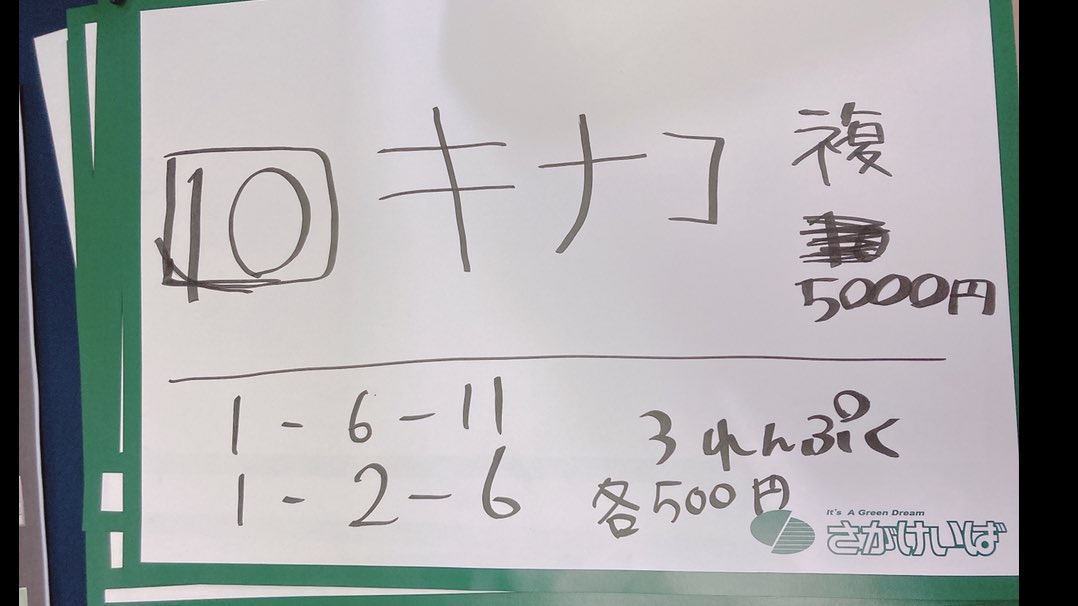 10 キナコ 複
5000円
1-6-11
1-2-6
3れんぷく
各500円
It's A Green Dream
さがけいば